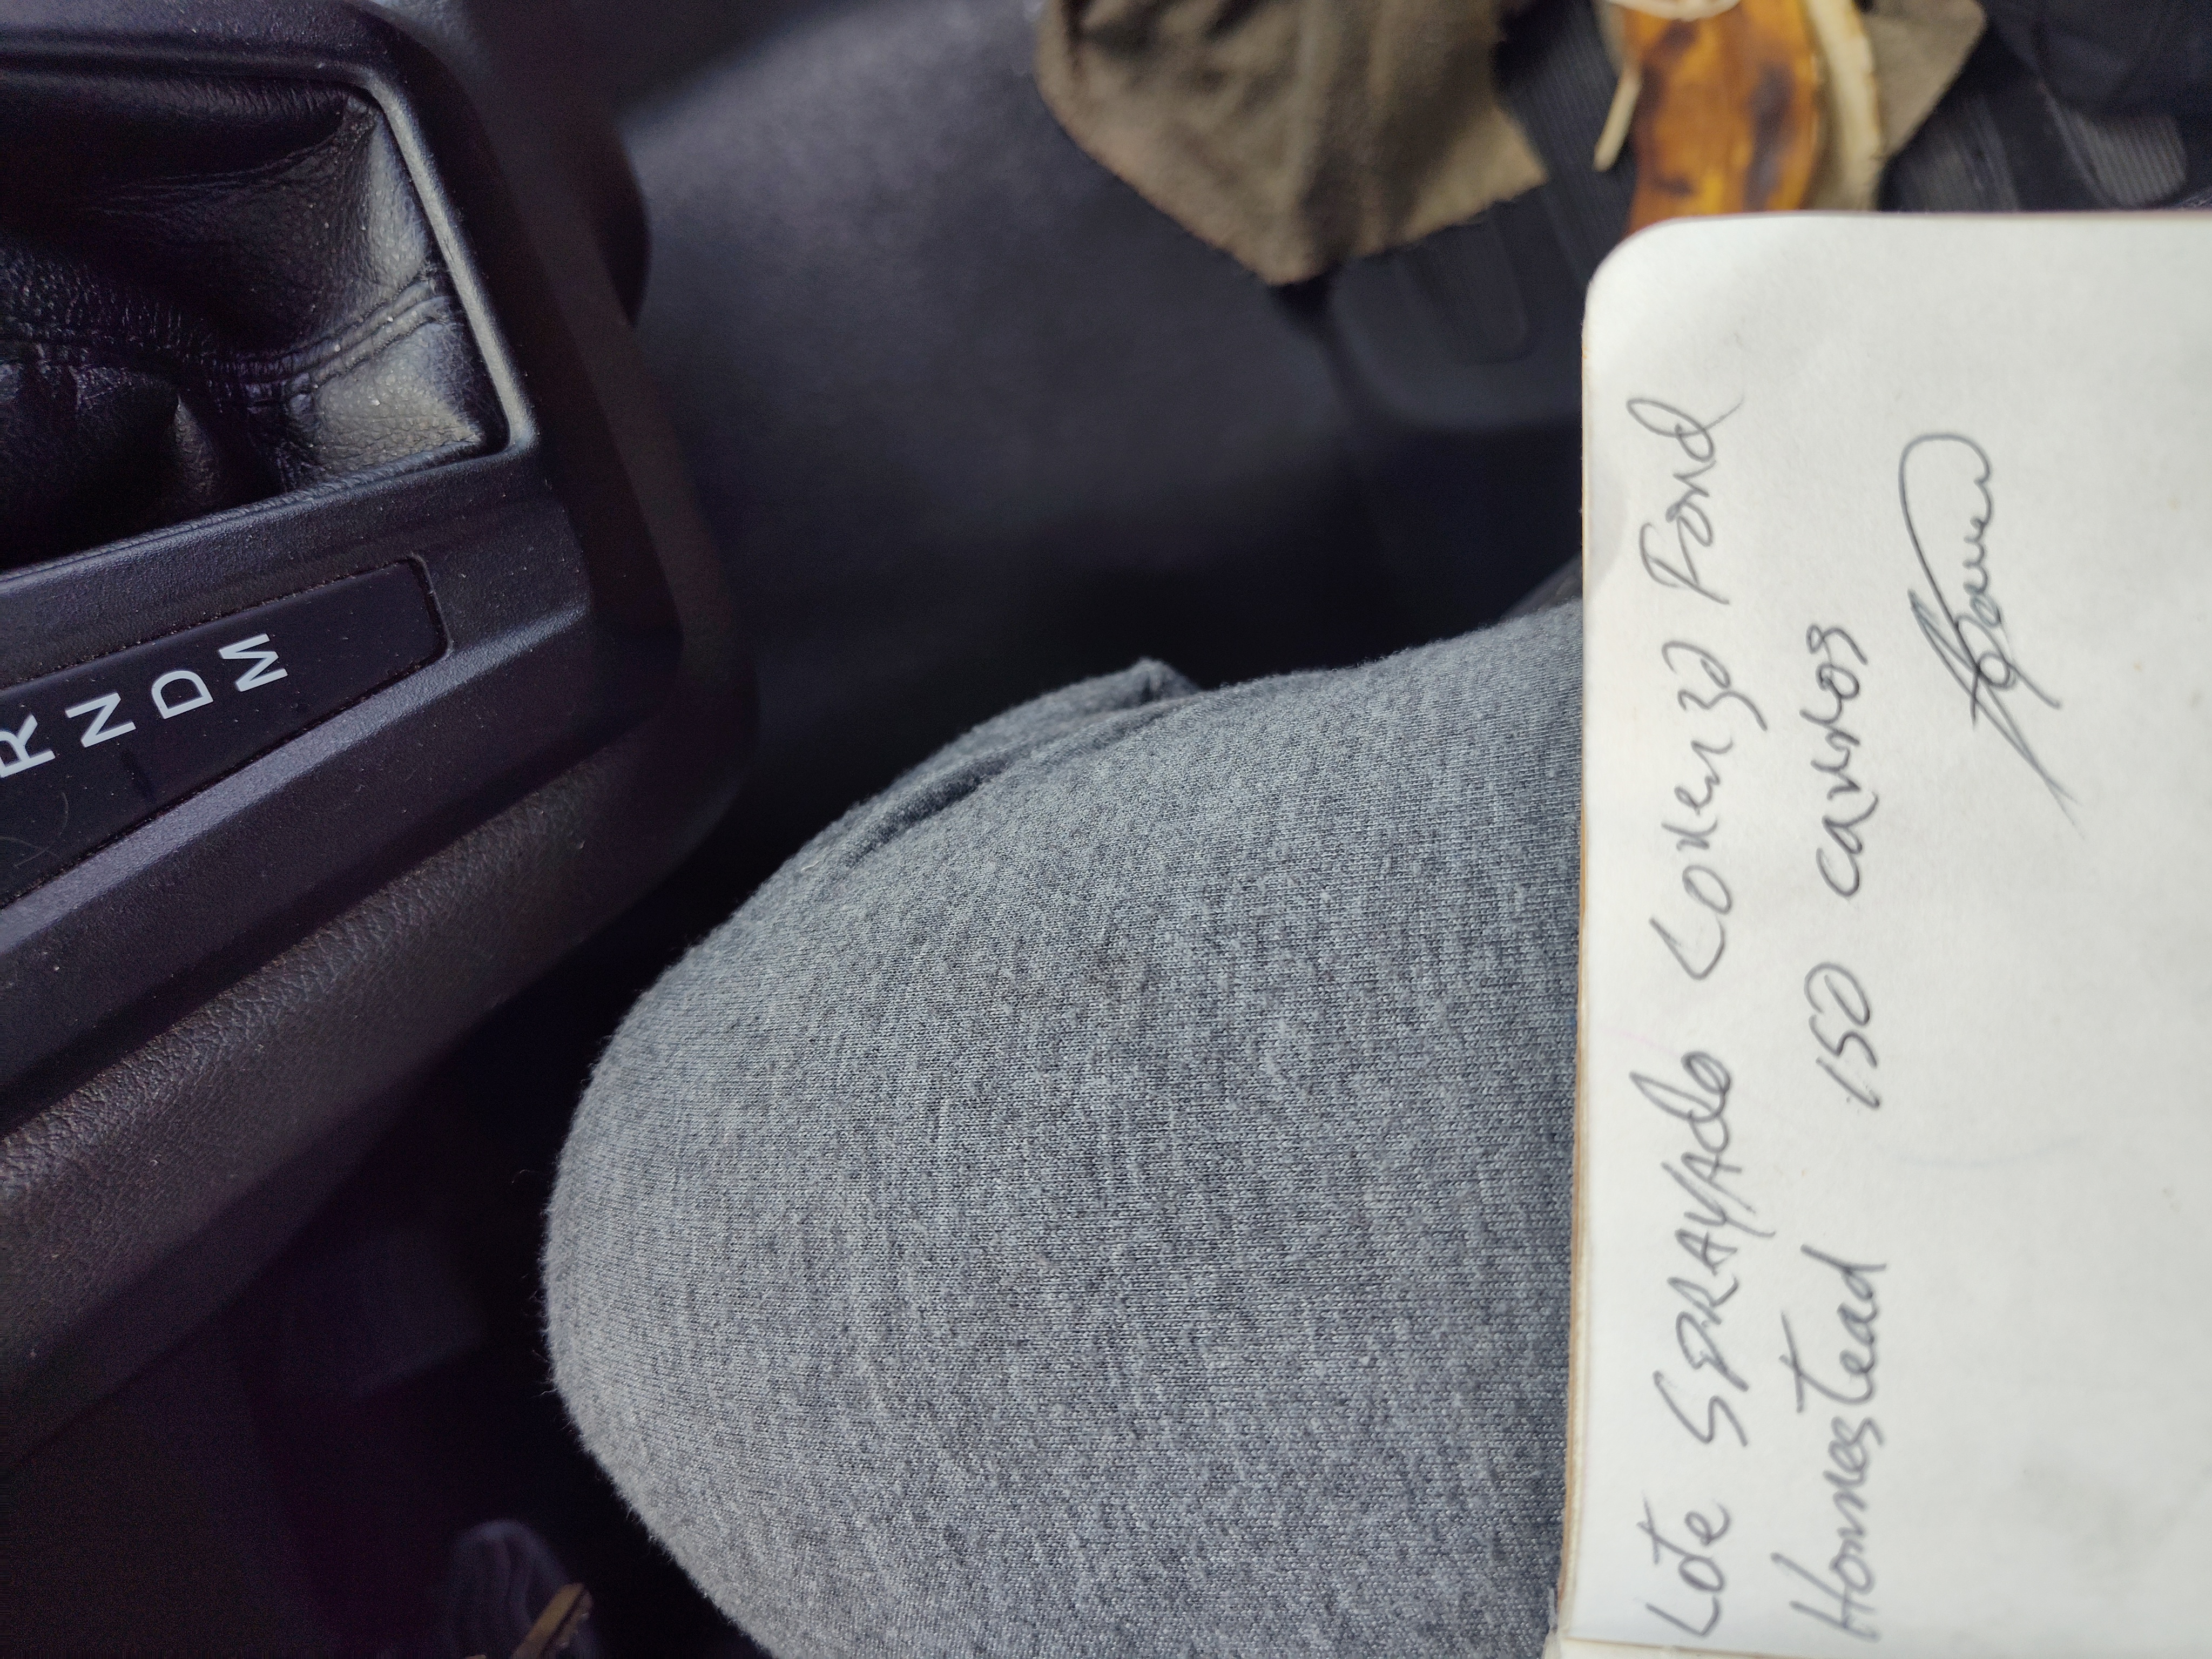 R
N
D
M
Lote SPRAYAdo Lorenzo Pond
Homestead 150 carros